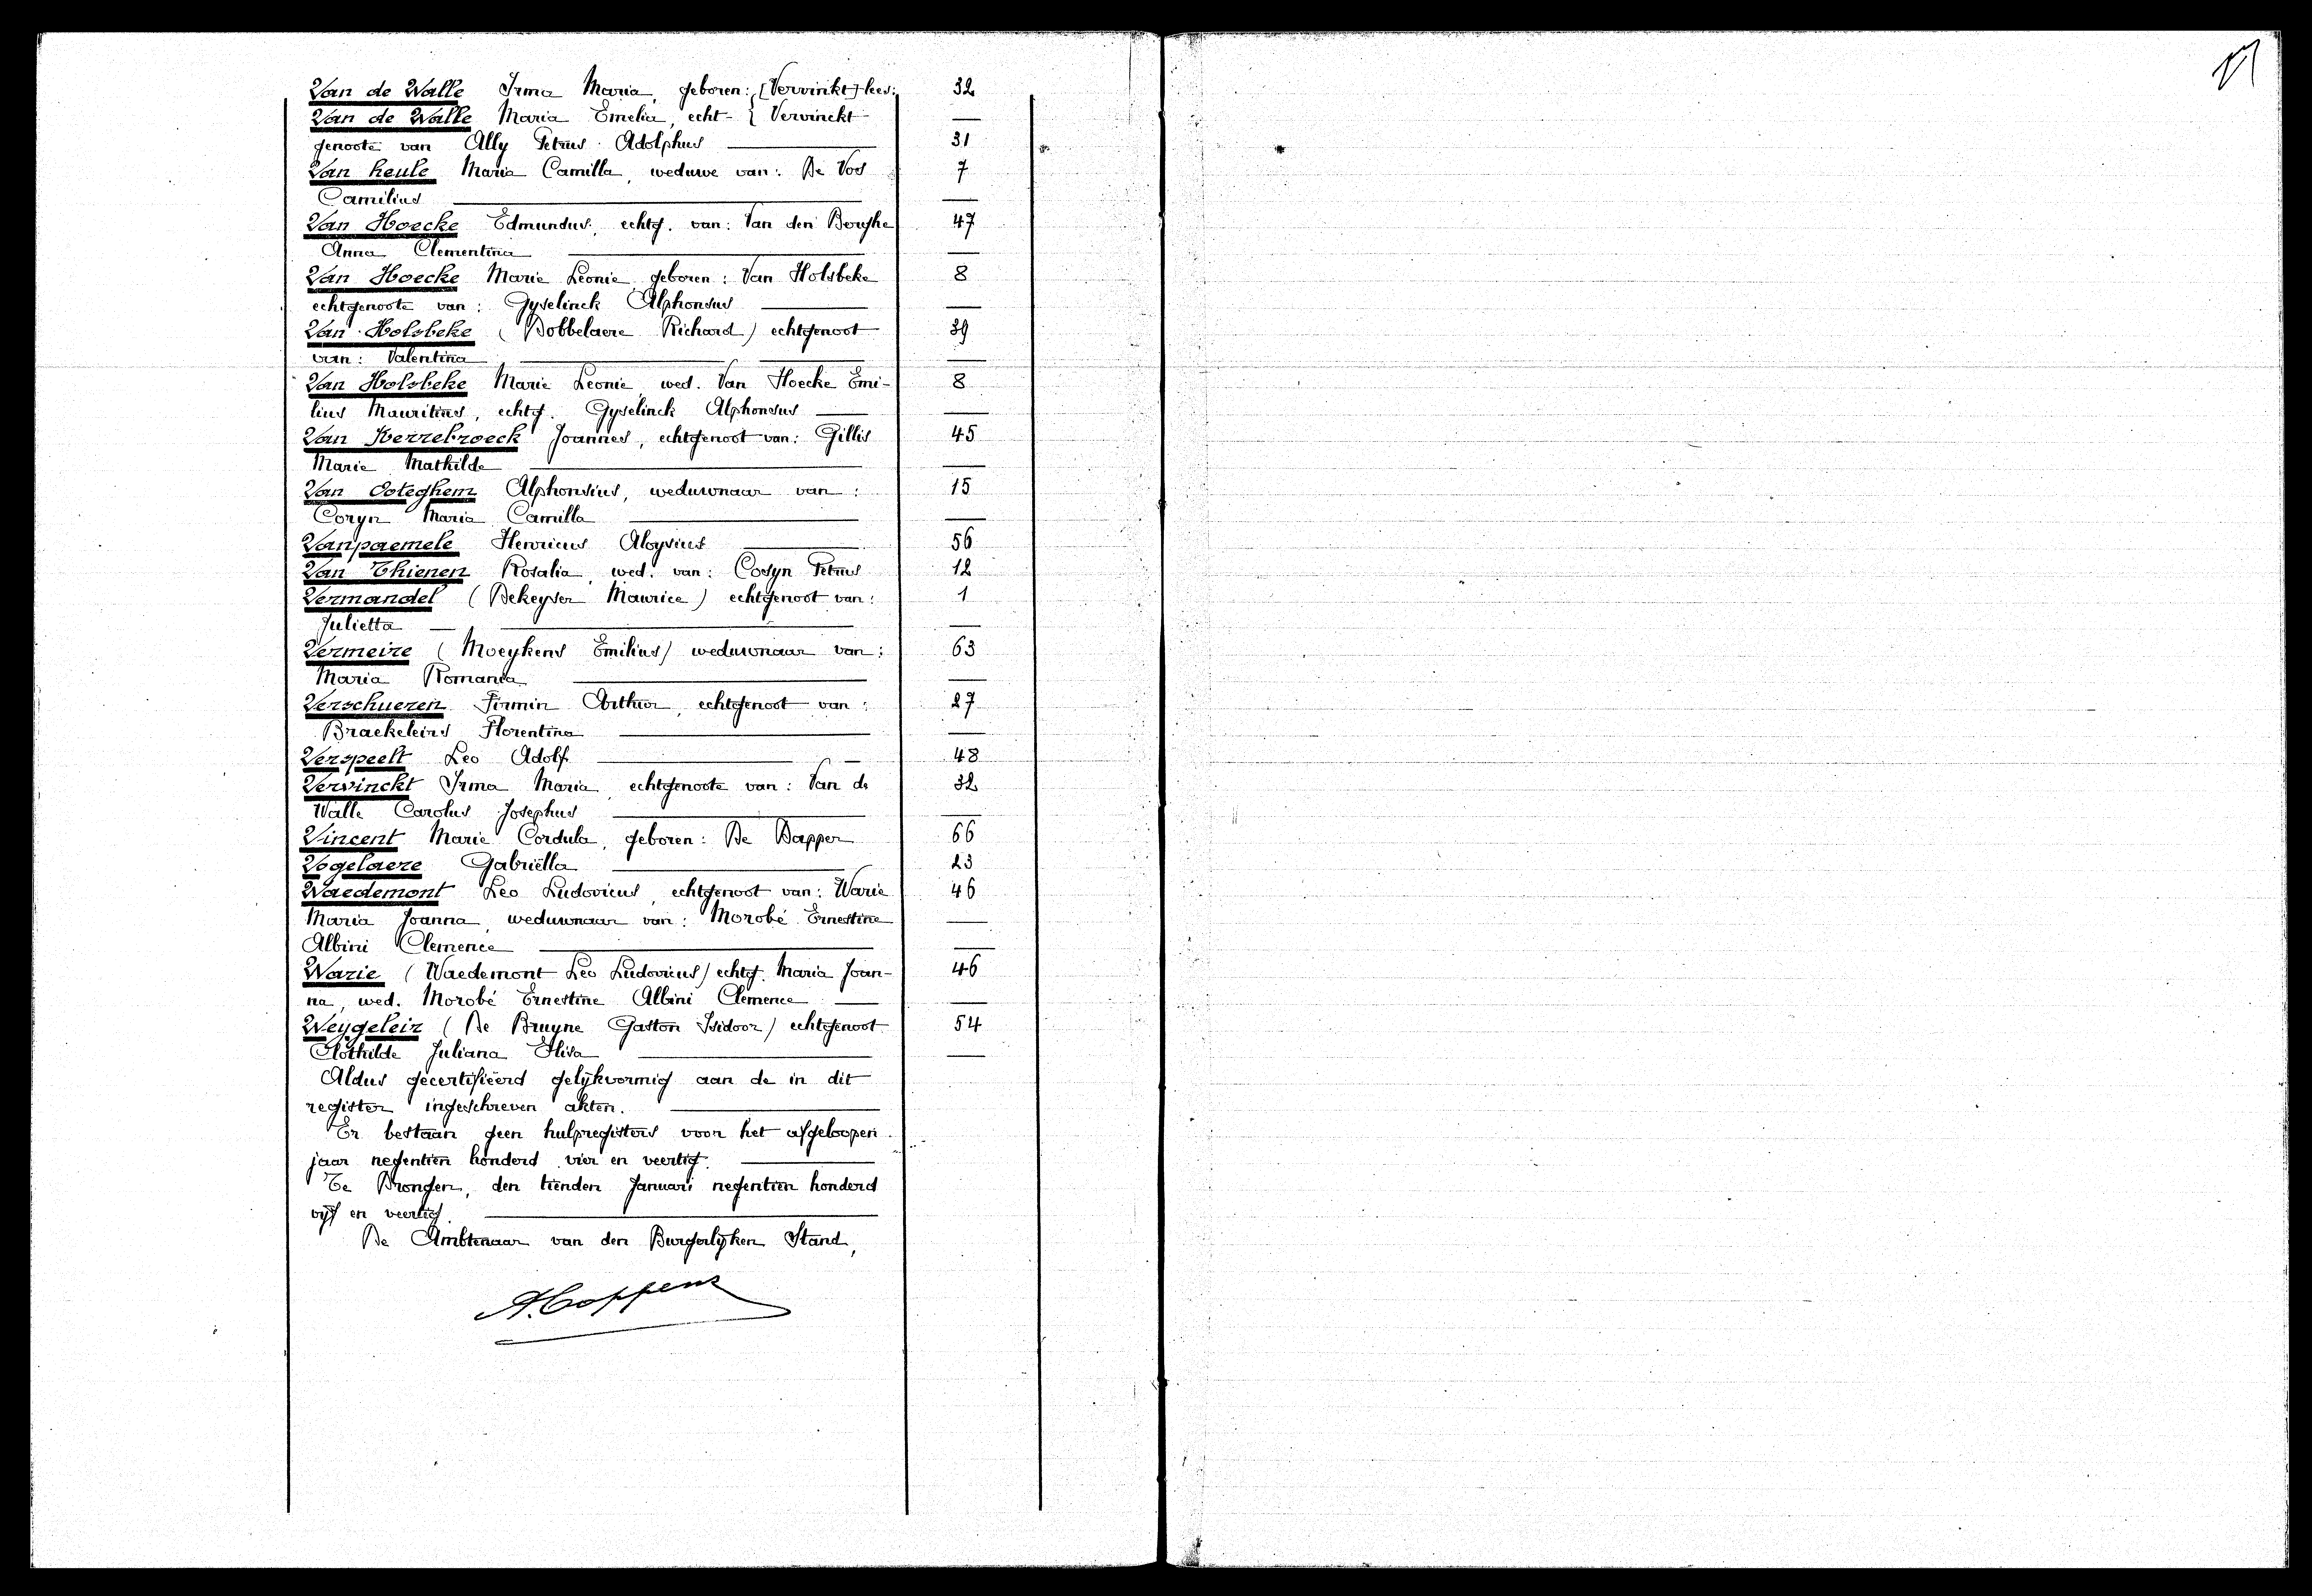 Van de Walle Irma Maria, geboren: [Vervinkt] lees: 32
Van de Walle Maria Emelia, echt- { Vervinckt —
genoote van Ally Petrus Adolphus — 31
Van heule Maria Camilla, weduwe van: De Vos 7
Camilius —
Van Hoecke Edmundus, echtg. van: Van den Berghe 47
Anna Clementina —
Van Hoecke Marie Leonie, geboren: Van Holsbeke 8
echtgenoote van: Gyselinck Alphonsus —
Van Holsbeke (Dobbelaere Richard) echtgenoot 39
van: Valentina —
Van Holsbeke Marie Leonie, wed. Van Hoecke Emi- 8
lius Mauritius, echtg. Gyselinck Alphonsus —
Van Kerrebroeck Joannes, echtgenoot van: Gillis 45
Marie Mathilde —
Van Ooteghem Alphonsius, weduwnaar van: 15
Coryn Maria Camilla —
Vanpaemele Henricus Aloysius — 56
Van Thienen Rosalia, wed. van: Cosyn Petrus 12
Vermandel (Dekeyser Maurice) echtgenoot van: 1
Julietta —
Vermeire (Moeykens Emilius) weduwnaar van: 63
Maria Romania —
Verschueren Firmin Arthur, echtgenoot van: 27
Braekeleirs Florentina —
Verspeelt Leo Adolf — 48
Vervinckt Irma Maria, echtgenoote van: Van de 32
Walle Carolus Josephus —
Vincent Marie Cordula, geboren: De Dapper 66
Vogelaere Gabriëlla — 23
Waedemont Leo Ludovicus, echtgenoot van: Warie 46
Maria Joanna, weduwnaar van: Morobé Ernestine —
Albini Clemence —
Warie (Waedemont Leo Ludovicus) echtg. Maria Joan- 46
na, wed. Morobé Ernestine Albini Clemence —
Weygeleir (De Bruyne Gaston Isidoor) echtgenoot 54
Clothilde Juliana Elisa —
Aldus gecertifieerd gelijkvormig aan de in dit
register ingeschreven akten. —
Er bestaan geen hulpregisters voor het afgeloopen
jaar negentien honderd vier en veertig. —
Te Drongen, den tienden Januari negentien honderd
vijf en veertig. —
De Ambtenaar van den Burgerlijken Stand,
A. Coppens